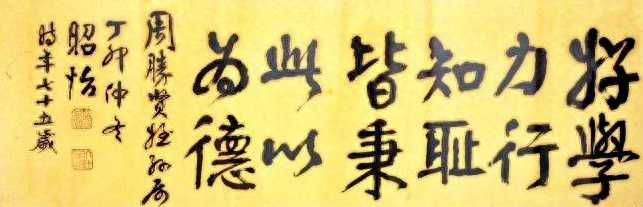 好學
力行
知耻
皆秉
此以
为德
周勝賢姪孙属
丁卯仲冬
昭怡
時年七十五歲